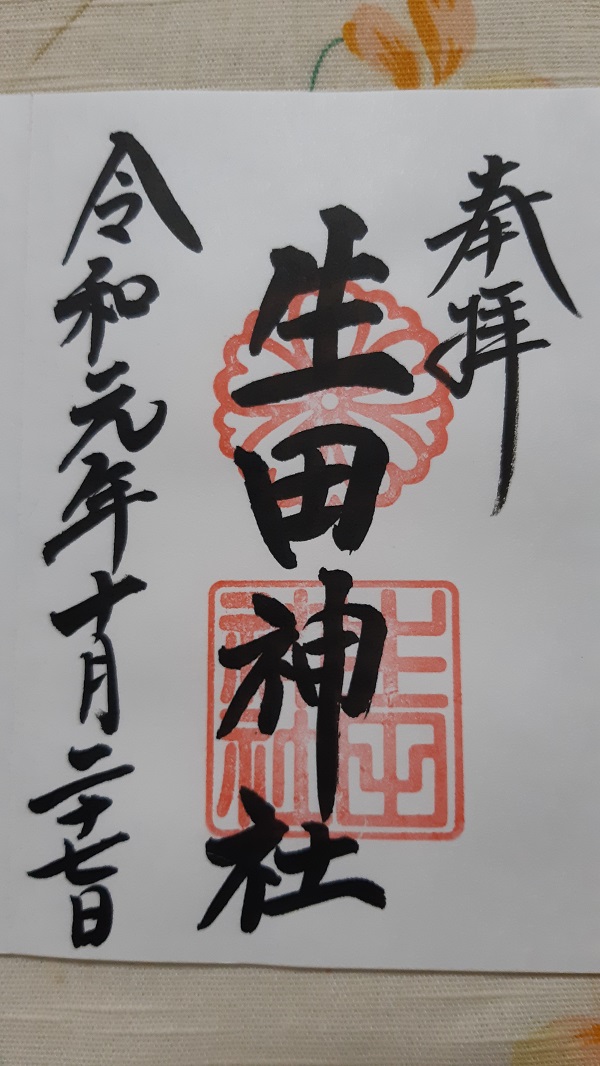 奉拝
生田神社
生田神社
令和元年十月二十七日